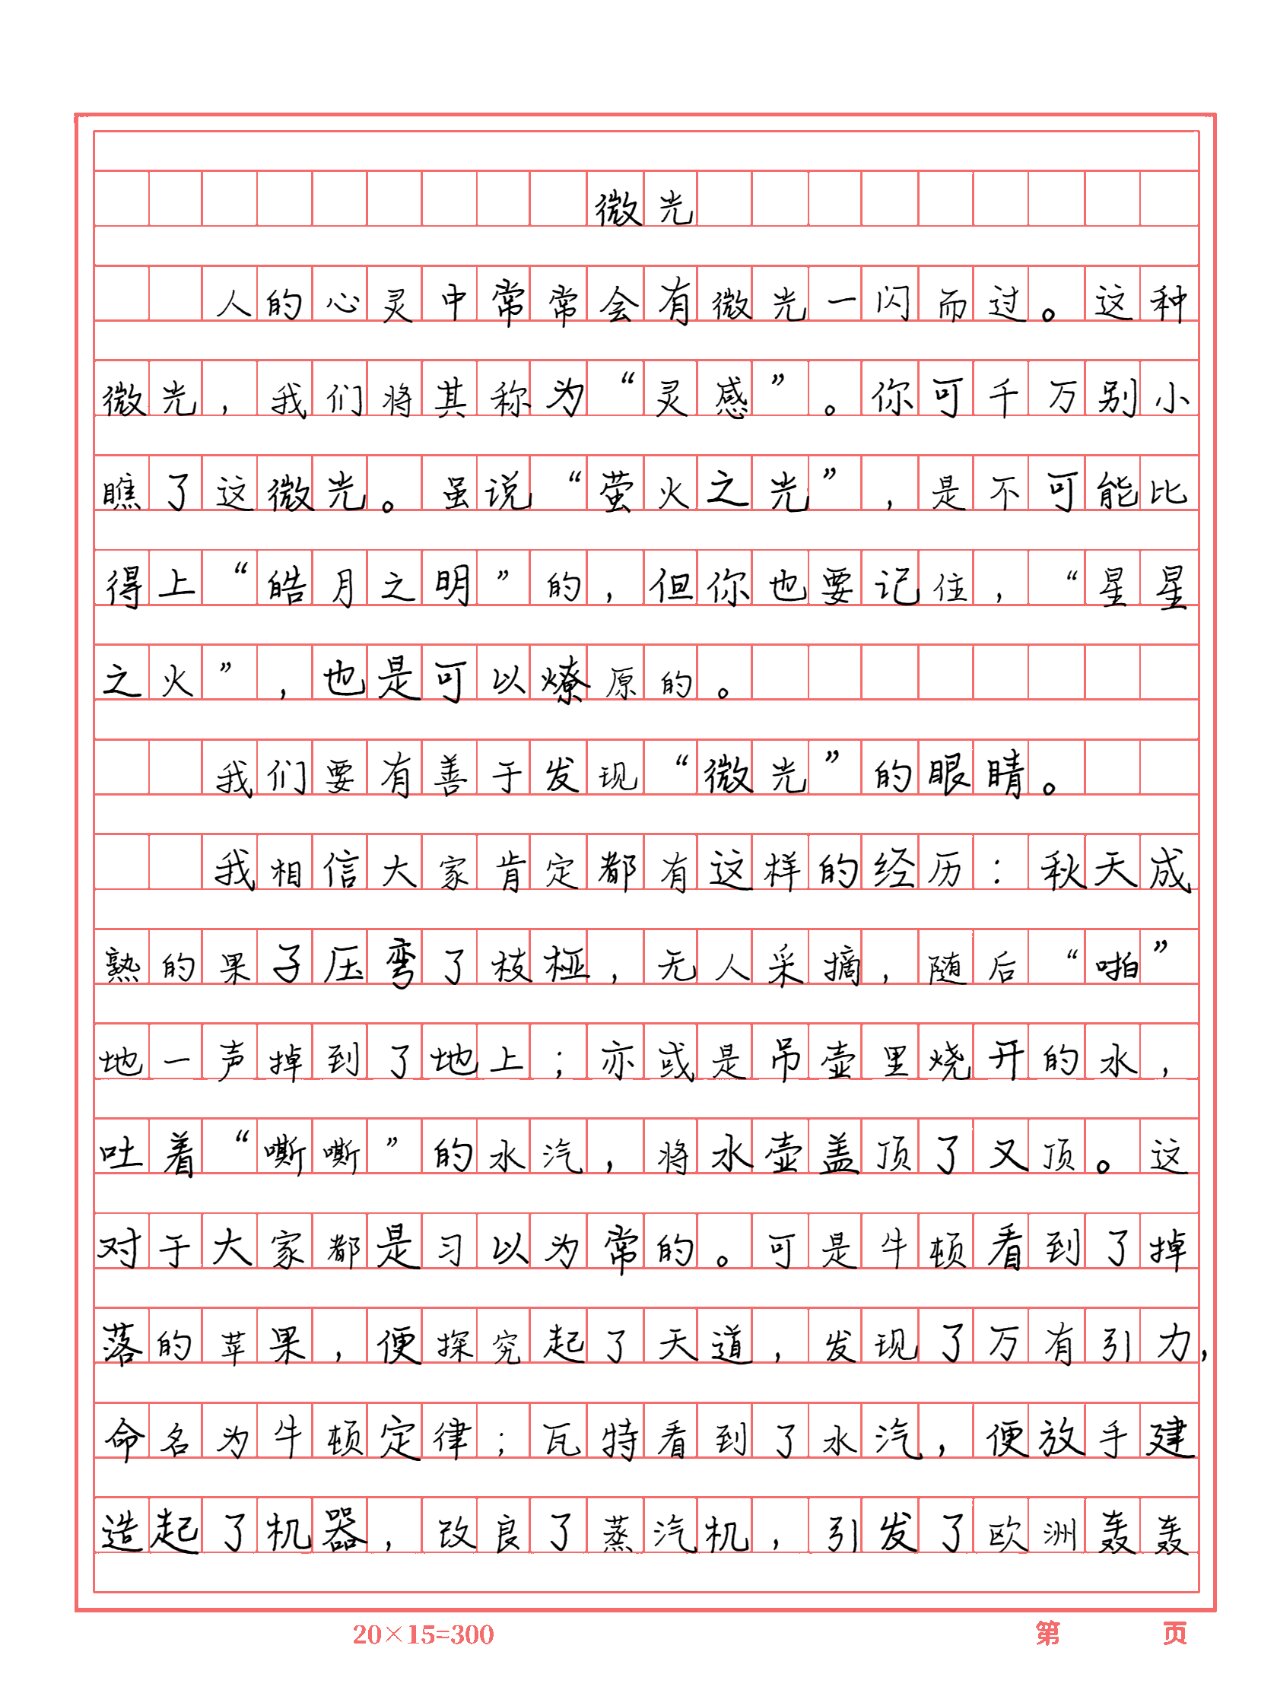 微光
人的心灵中常常会有微光一闪而过。这种
微光，我们将其称为“灵感”。你可千万别小
瞧了这微光。虽说“萤火之光”，是不可能比
得上“皓月之明”的，但你也要记住，“星星
之火”，也是可以燎原的。
我们要有善于发现“微光”的眼睛。
我相信大家肯定都有这样的经历：秋天成
熟的果子压弯了枝桠，无人采摘，随后“啪”
地一声掉到了地上；亦或是吊壶里烧开的水，
吐着“嘶嘶”的水汽，将水壶盖顶了又顶。这
对于大家都是习以为常的。可是牛顿看到了掉
落的苹果，便探究起了天道，发现了万有引力，
命名为牛顿定律；瓦特看到了水汽，便放手建
造起了机器，改良了蒸汽机，引发了欧洲轰轰
20×15=300 第 页